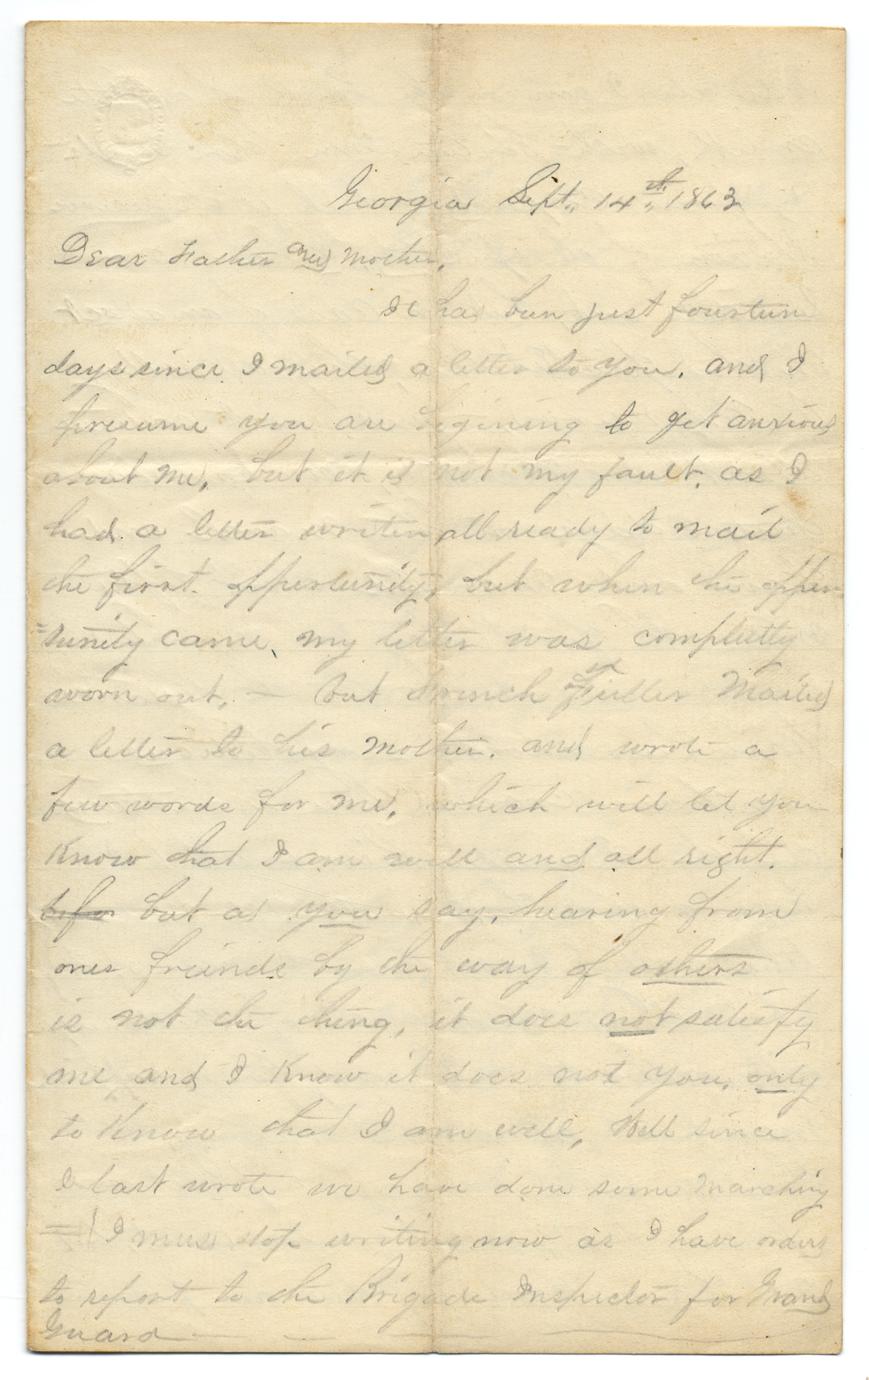 Georgia Sept., 14th, 1863
Dear Father and Mother,
It has bun just fourteen
days since I mailed a letter to you. and I
presume you are begining to get anxious
about me, but it is not my fault, as I
had a letter writen all ready to mail
the first oppertunity, but when the opper
=tunity came, my letter was completly
worn out, — but Fuller Mailed
a letter to his mother. and wrote a
few words for me, which will let you
Know that I am well and all right.
but as you say, hearing from
ones freinds by the way of others
is not the thing, it does not satisfy
me and I Know it does not you, only
to Know that I am well, Well since
I last wrote we have done some marching
= I must stop writing now as I have orders
to report to the Brigade Inspector for Grand
Guard —